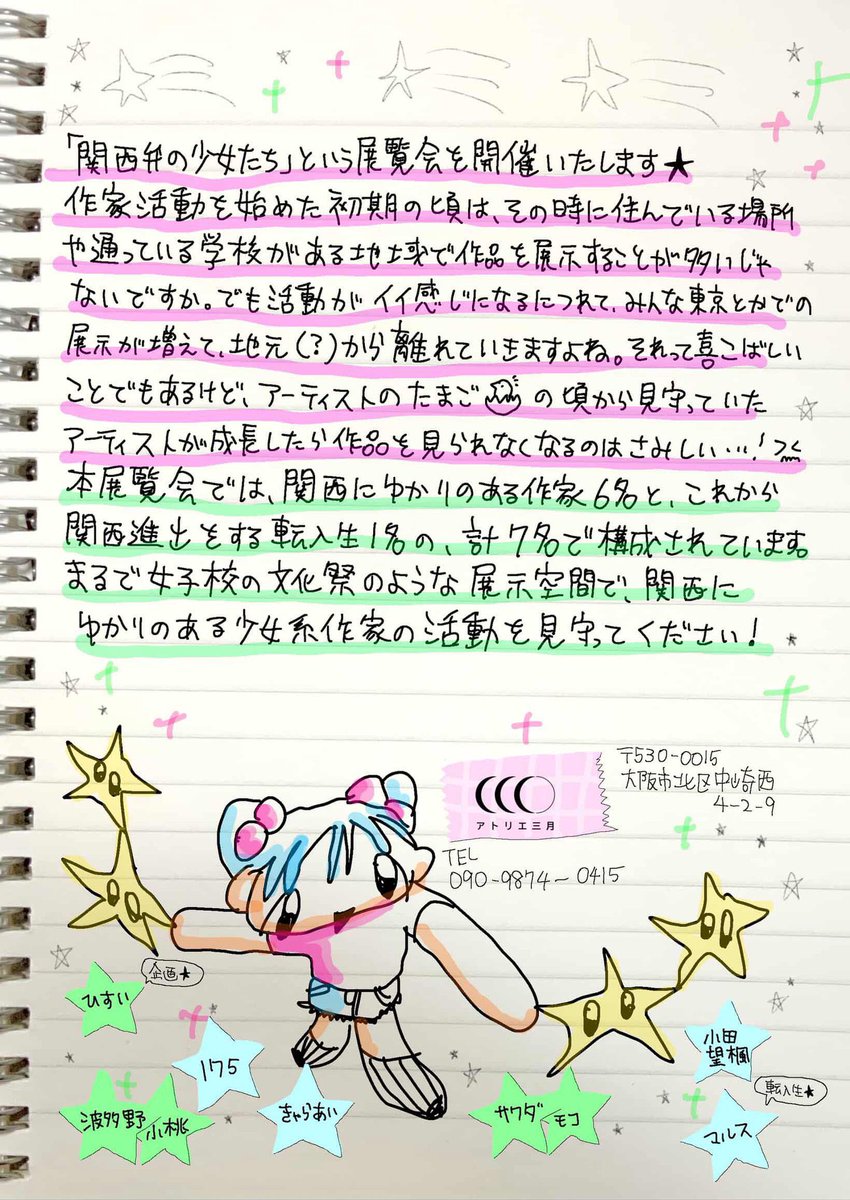 「関西弁の少女たち」という展覧会を開催いたします★
作家活動を始めた初期の頃は、その時に住んでいる場所
や通っている学校がある地域で作品を展示することが多いじゃ
ないですか。でも活動がイイ感じになるにつれて、みんな東京とかでの
展示が増えて、地元(?)から離れていきますよね。それって喜こばしい
ことでもあるけど、アーティストのたまごの頃から見守っていた
アーティストが成長したら作品を見られなくなるのはさみしい…!
本展覧会では、関西にゆかりのある作家6名と、これから
関西進出をする転入生1名の、計7名で構成されています。
まるで女子校の文化祭のような展示空間で、関西に
ゆかりのある少女系作家の活動を見守ってください!
アトリエ三月
〒530-0015
大阪市北区中崎西
4-2-9
TEL
090-9874-0415
企画★
ひすい
175
波多野
小桃
きゃらあい
サワダ
モコ
小田
望楓
転入生★
マルス